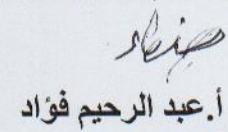 أ.عبد الرحيم فؤاد